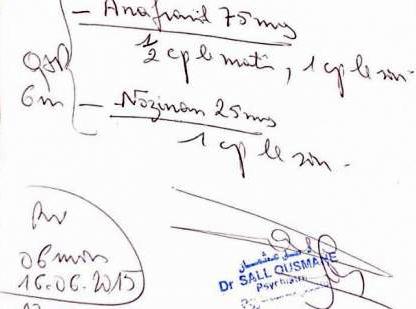 - Anafranil 75 mg
1/2 cp le matin, 1 cp le soir.
QSP
6m
- Nozinan 25 mg
1 cp le soir.
RV
06 mois
16.06.2015
Dr SALL OUSMANE
Psychiatre